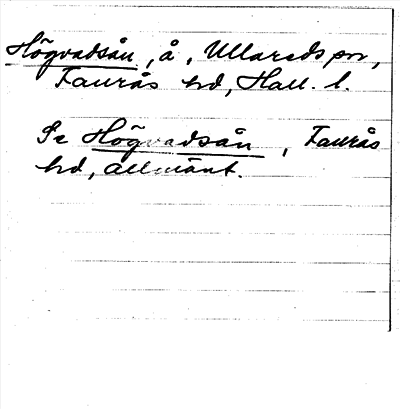 Högvadsån, å, Ullareds sn,
Faurås hd, Hall. l.
Se Högvadsån, Faurås
hd, allmänt.